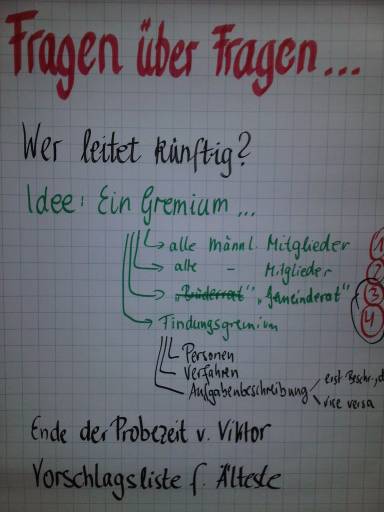 Fragen über Fragen...
Wer leitet künftig?
Idee: Ein Gremium...
alle männl. Mitglieder 1
alle - Mitglieder 2
"Büderrat" "Gemeinderat" 3
Findungsgremium 4
Personen
Verfahren
Aufgabenbeschreibung
erst Beschr.,
vice versa
Ende der Probezeit v. Viktor
Vorschlagsliste f. Älteste